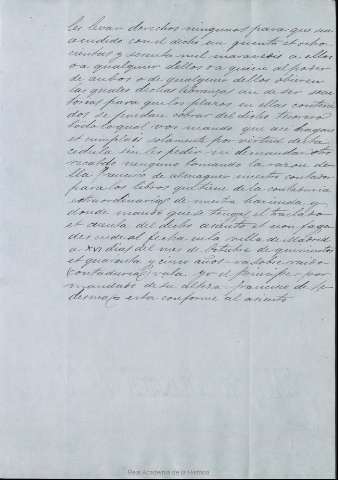 les levar derechos ningunos para que sea
acudido con el dicho un quento et ocho
cientas y sesenta mil maravedis a ellos
o a qualquier dellos o a quien el poder
de ambos o de qualquier dellos obieren
las quales dichas libranzas an de ser
para que los plazos en ellas conteni
dos se puedan cobrar del dicho tesorero
todo lo qual vos mando que asi hagais
et cumplais solamente por virtud desta
cedula sin les pedir ni demandar otro
recabdo ninguno tomando la razon de
lla francisco de almaguer nuestro contador
para los libros que tiene de la contaduria
extraordinaria de nuestra hacienda y
donde mando que se tenga el traslado
et cuenta del dicho asiento et non faga
des ende al dicha en la villa de Madrid
a XVI dias del mes de otubre de quinientos
et quarenta y cinco años va sobre raido
contaduria vala yo el principe por
mandado de su alteza francisco de le
desma esta conforme al asiento
Real Academia de la Historia